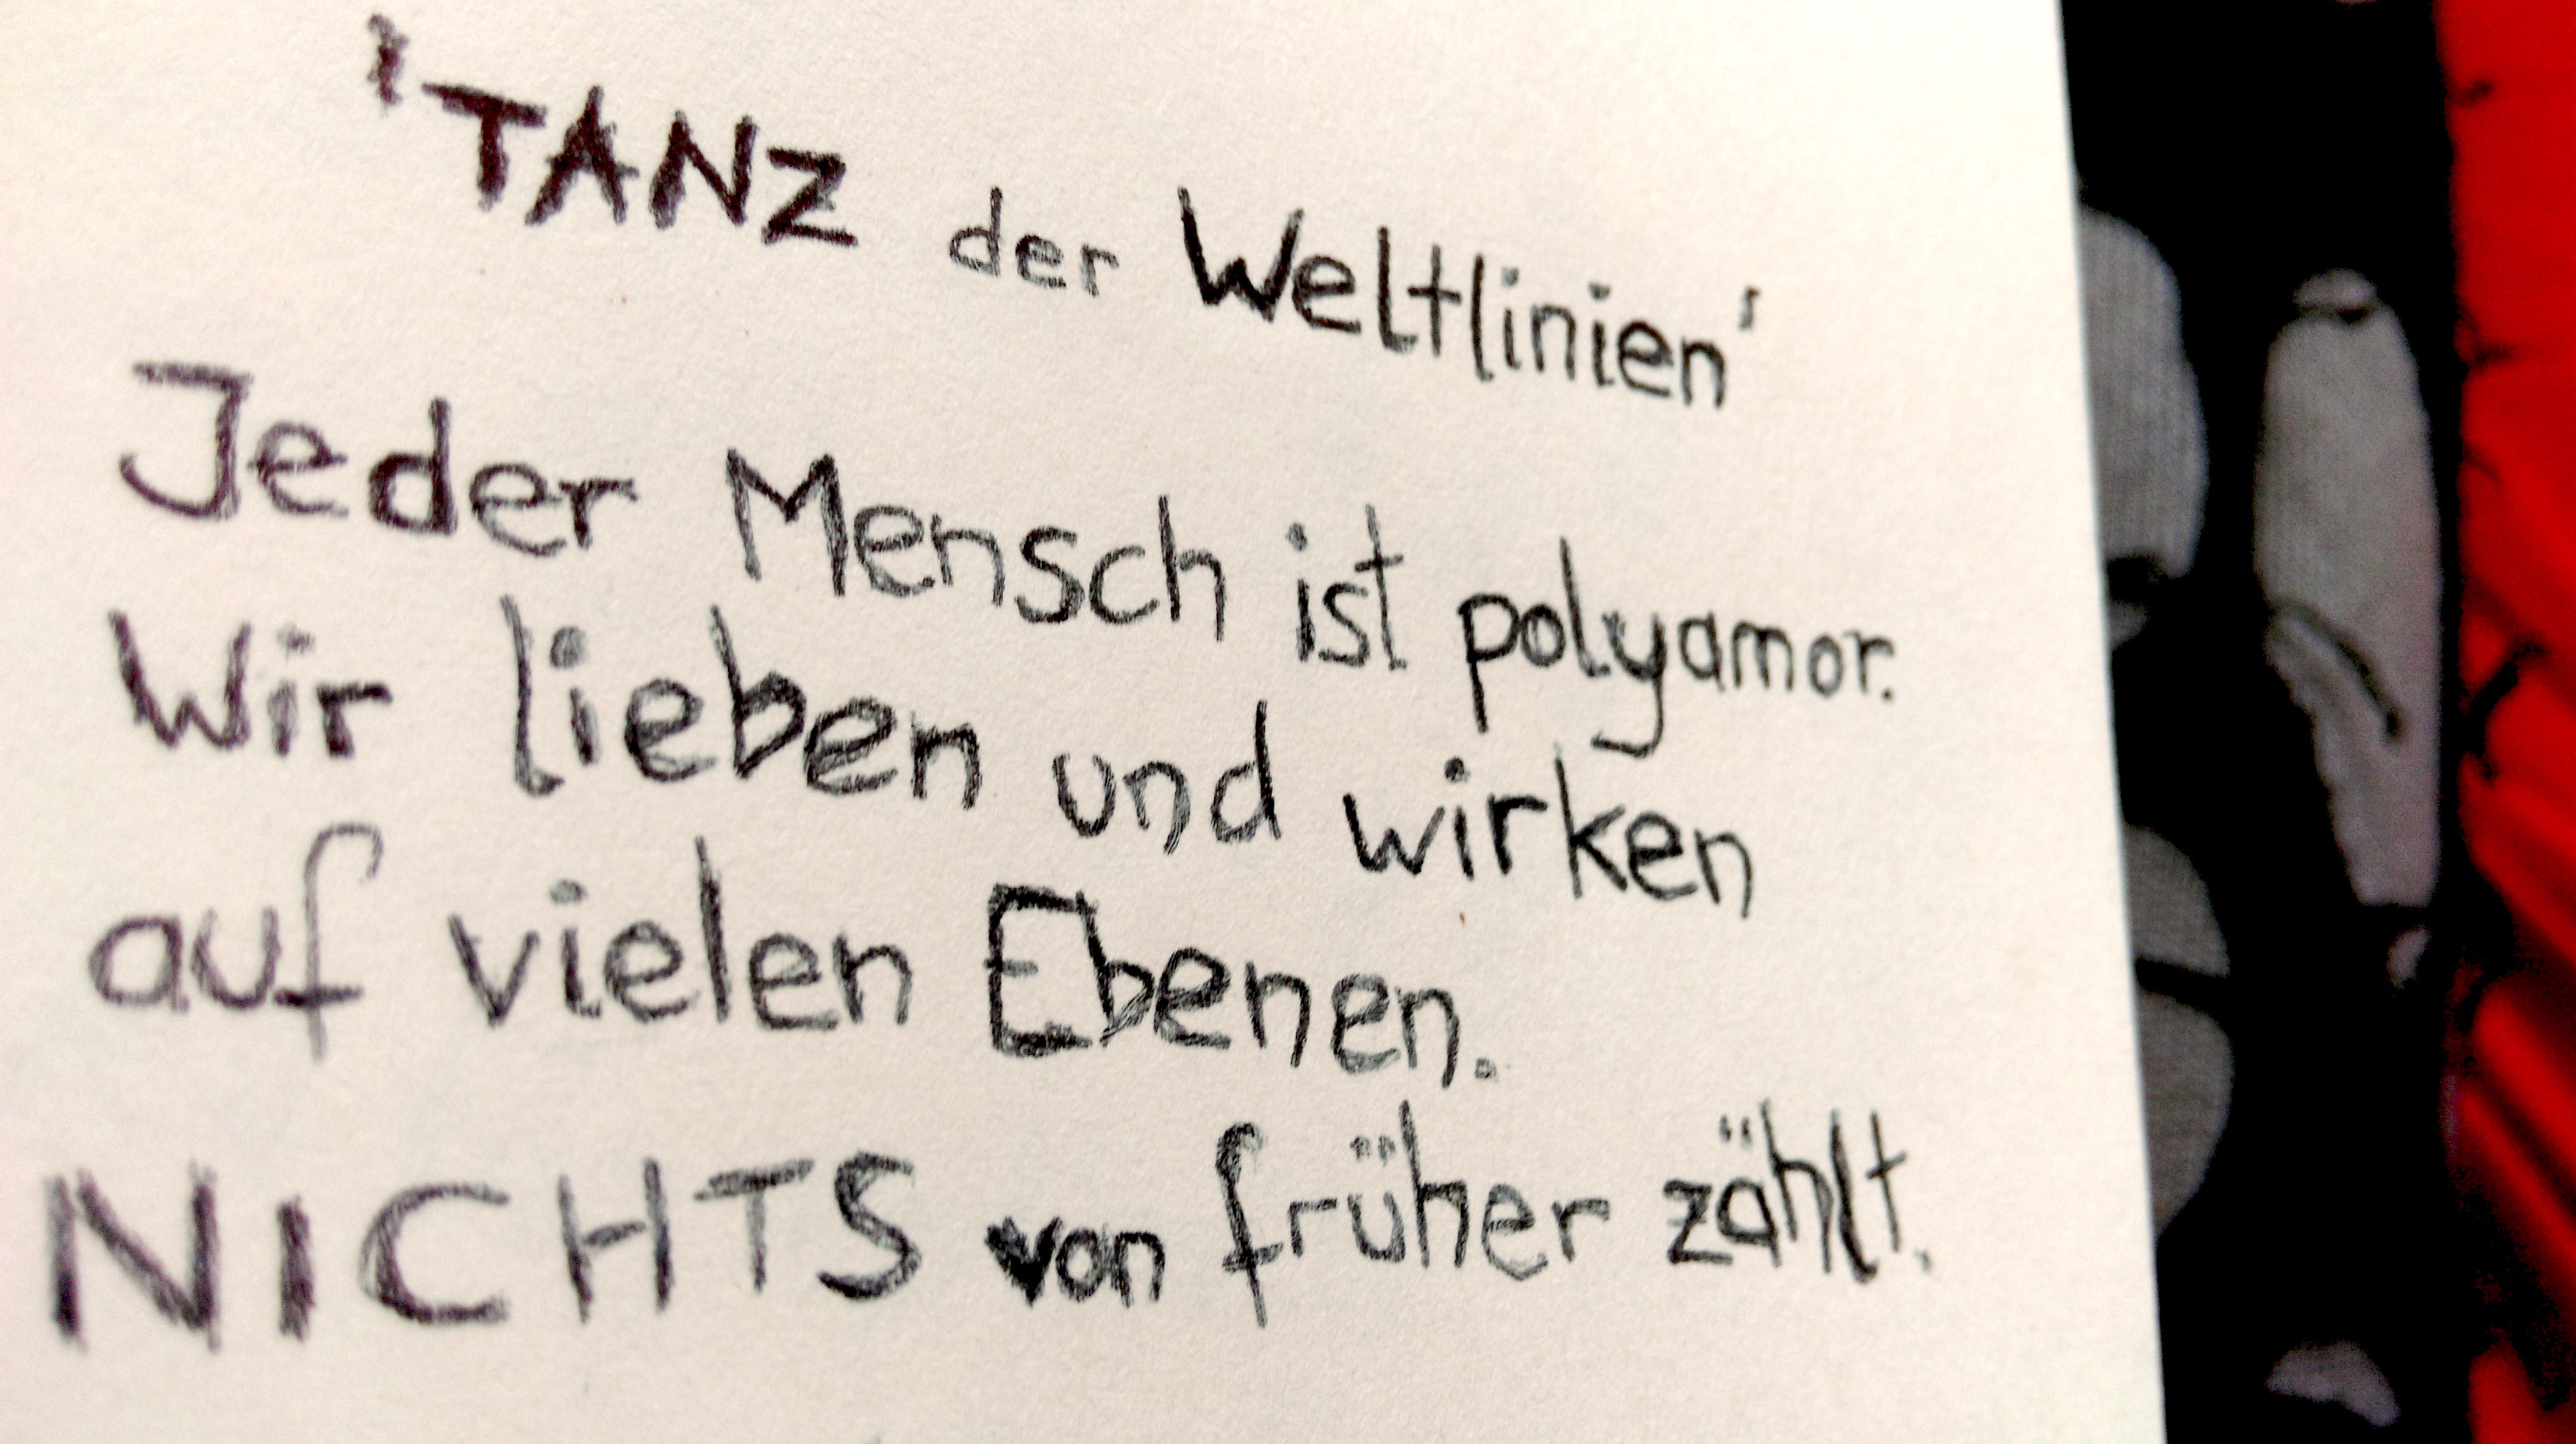 'TANZ der Weltlinien'
Jeder Mensch ist polyamor.
Wir lieben und wirken
auf vielen Ebenen.
NICHTS von früher zählt.